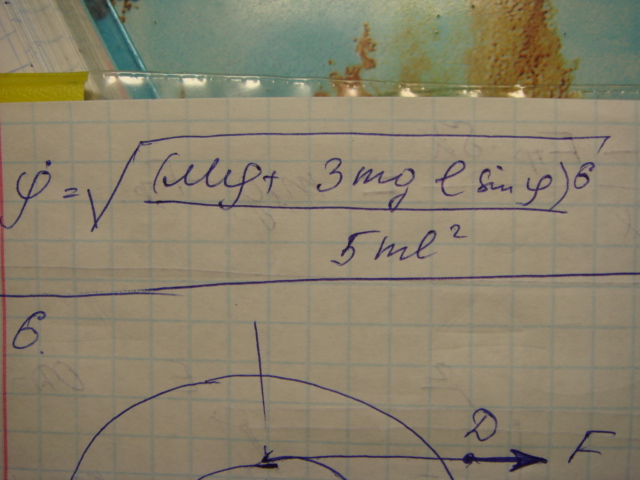 φ̇ = √((Mφ + 3mg ℓ sin φ) 6 / 5mℓ²)
6.
D F